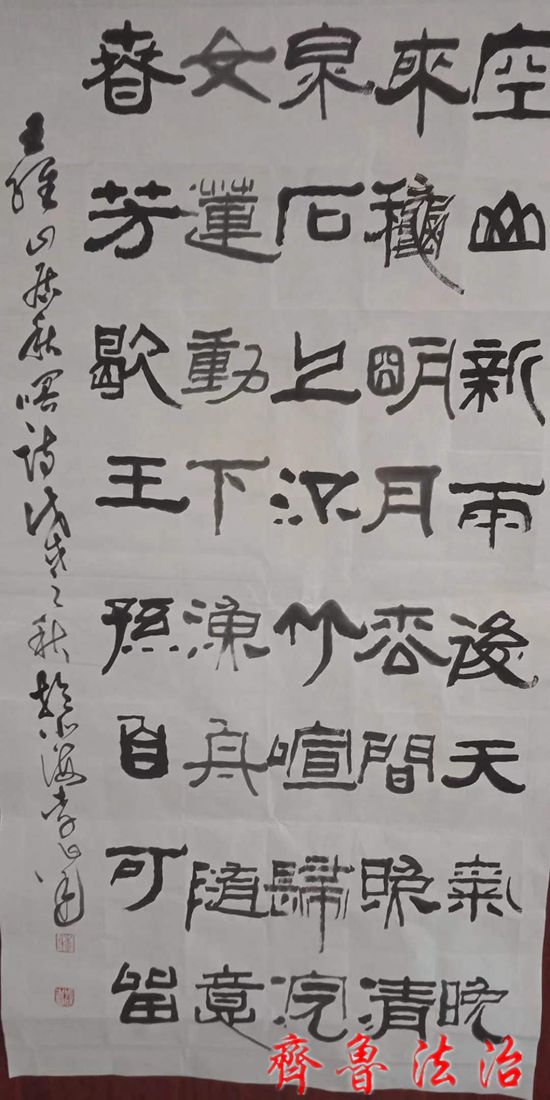 空山新雨後天氣晚
來龝明月枩間照清
泉石上流竹喧歸浣
女蓮動下漁舟隨意
春芳歇王孫自可留
王維山居秋暝詩戊戌之秋於北海李
齊魯法治